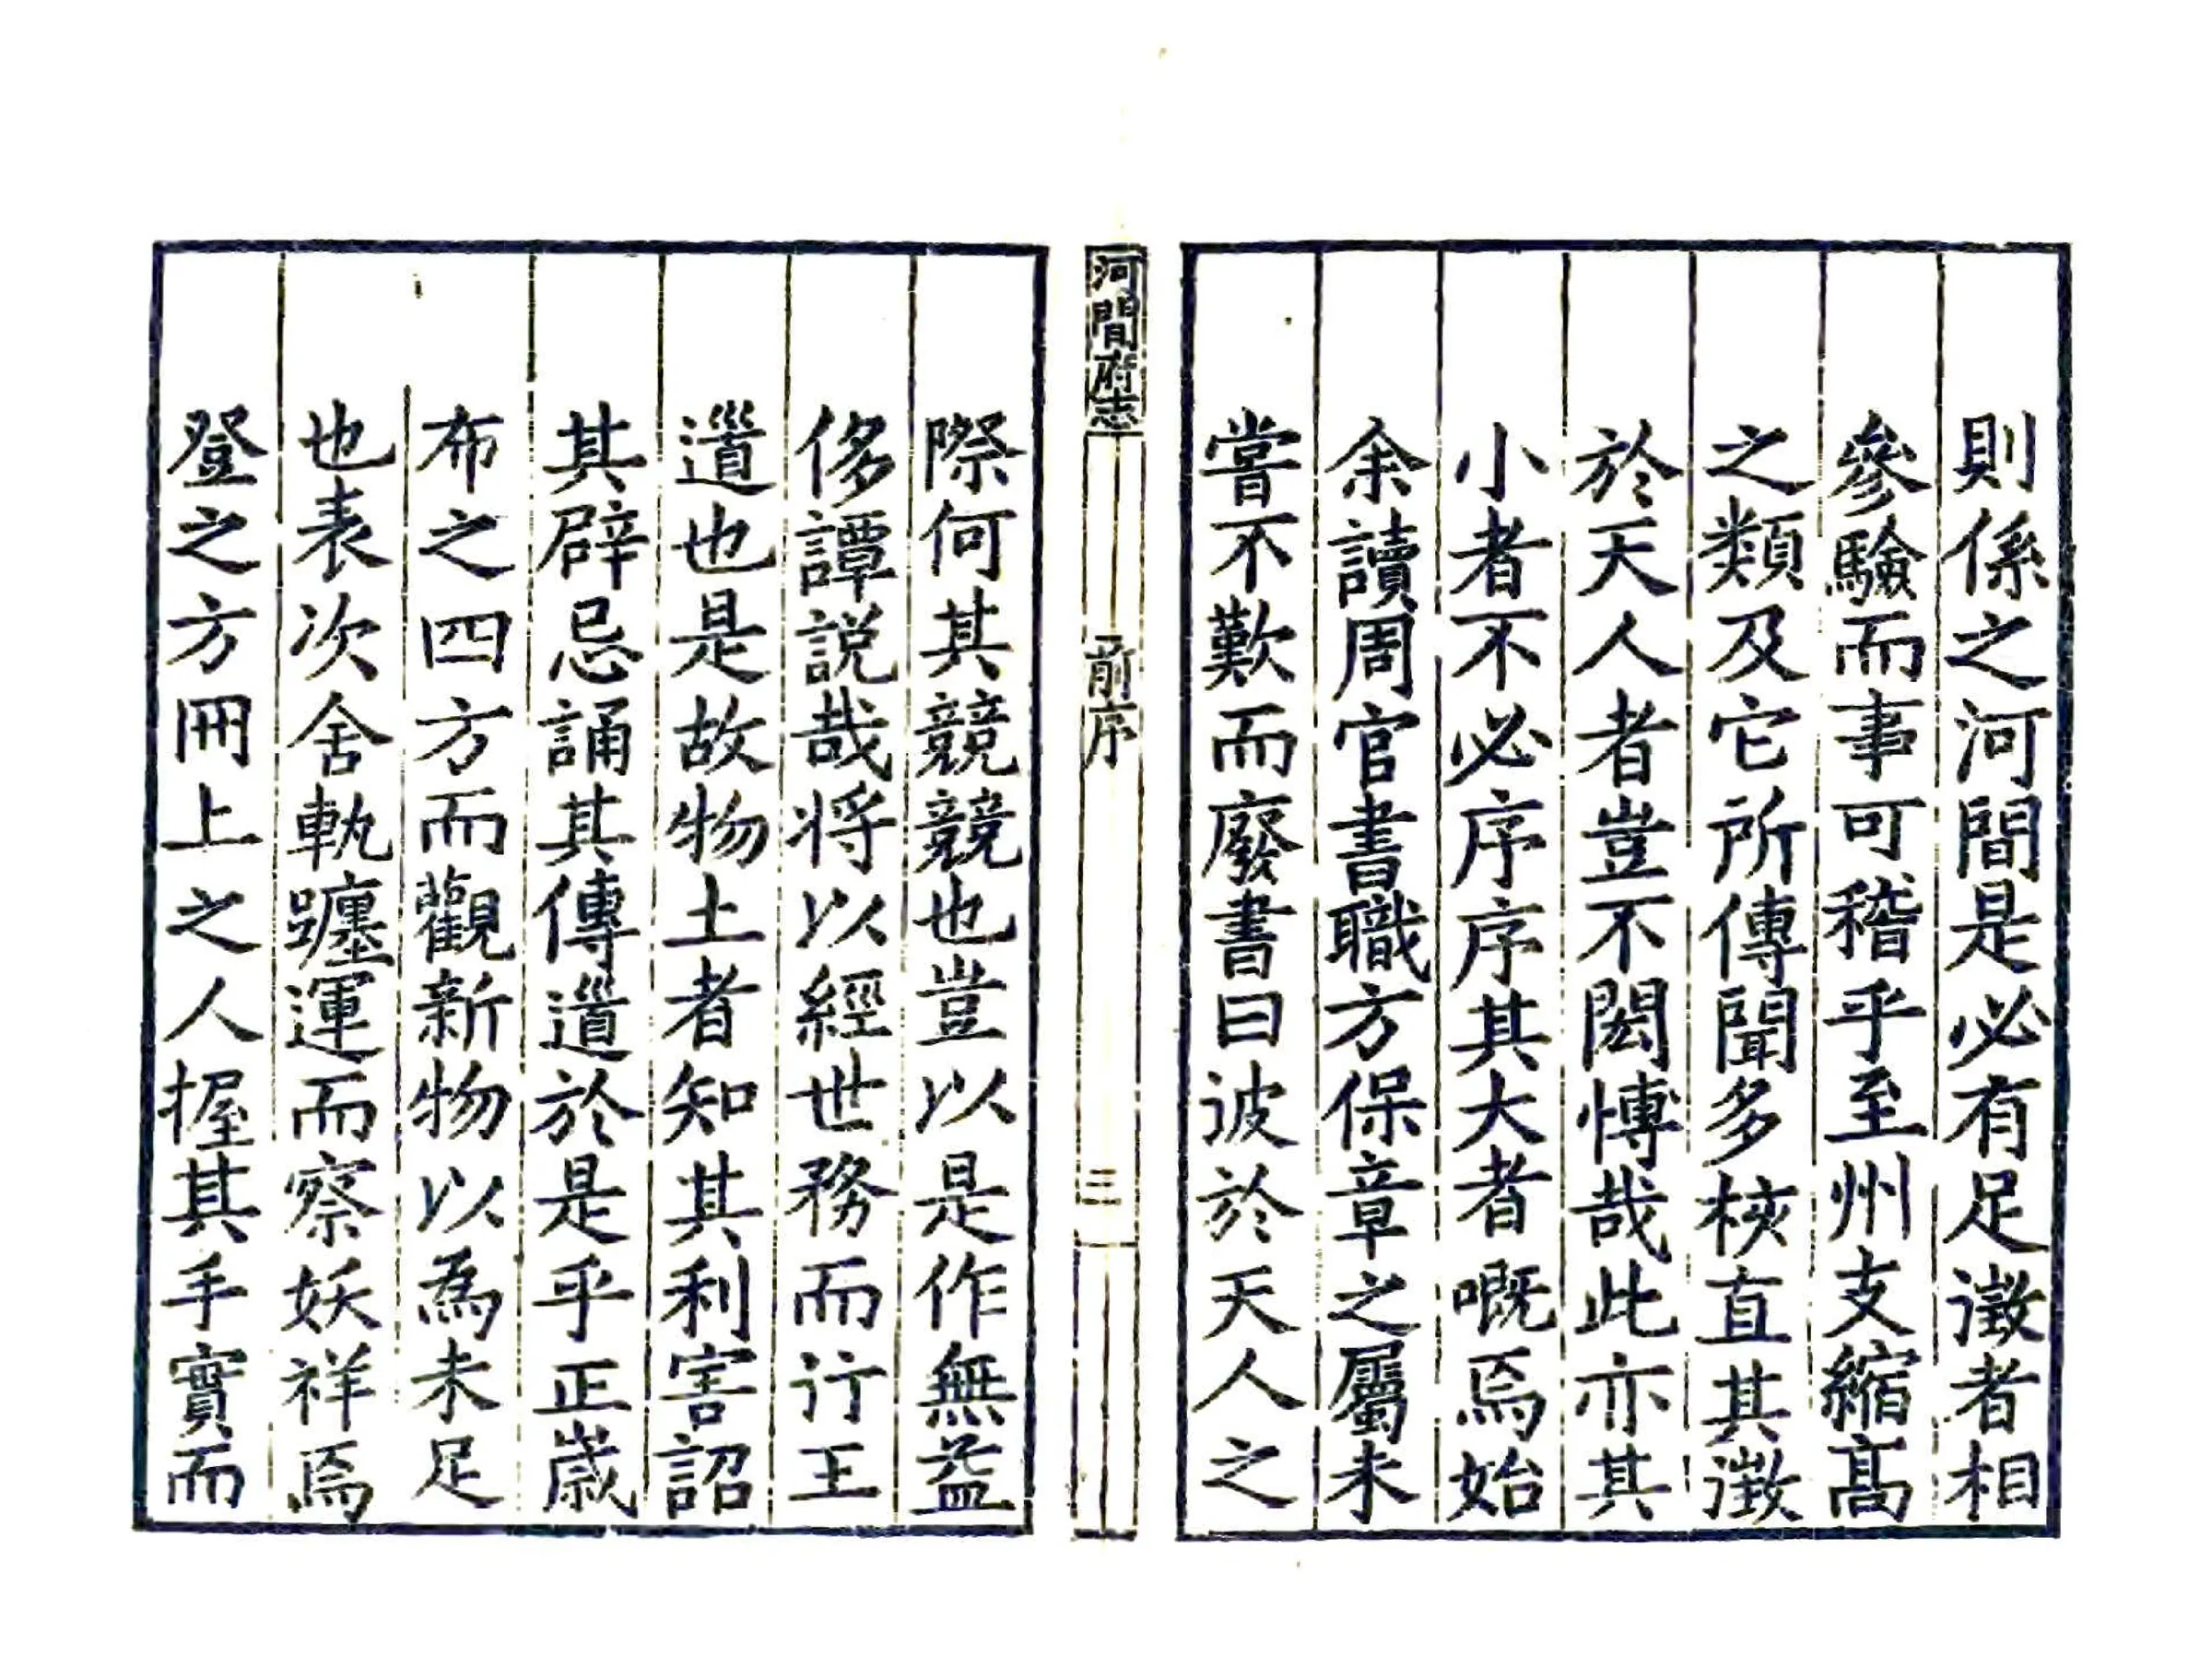 則係之河間是必有足徵者相
參驗而事可稽乎至州支縮髙
之類及它所傳聞多核直其徵
於天人者豈不閎博哉此亦其
小者不必序序其大者嘅焉始
余讀周官書職方保章之屬未
嘗不歎而廢書曰彼於天人之
河間府志
前序
三
際何其競競也豈以是作無益
侈譚説哉将以經世務而行王
道也是故物土者知其利害詔
其辟忌誦其傳道於是乎正歲
布之四方而觀新物以為未足
也表次舍軌躔運而察妖祥焉
登之方冊上之人握其手實而